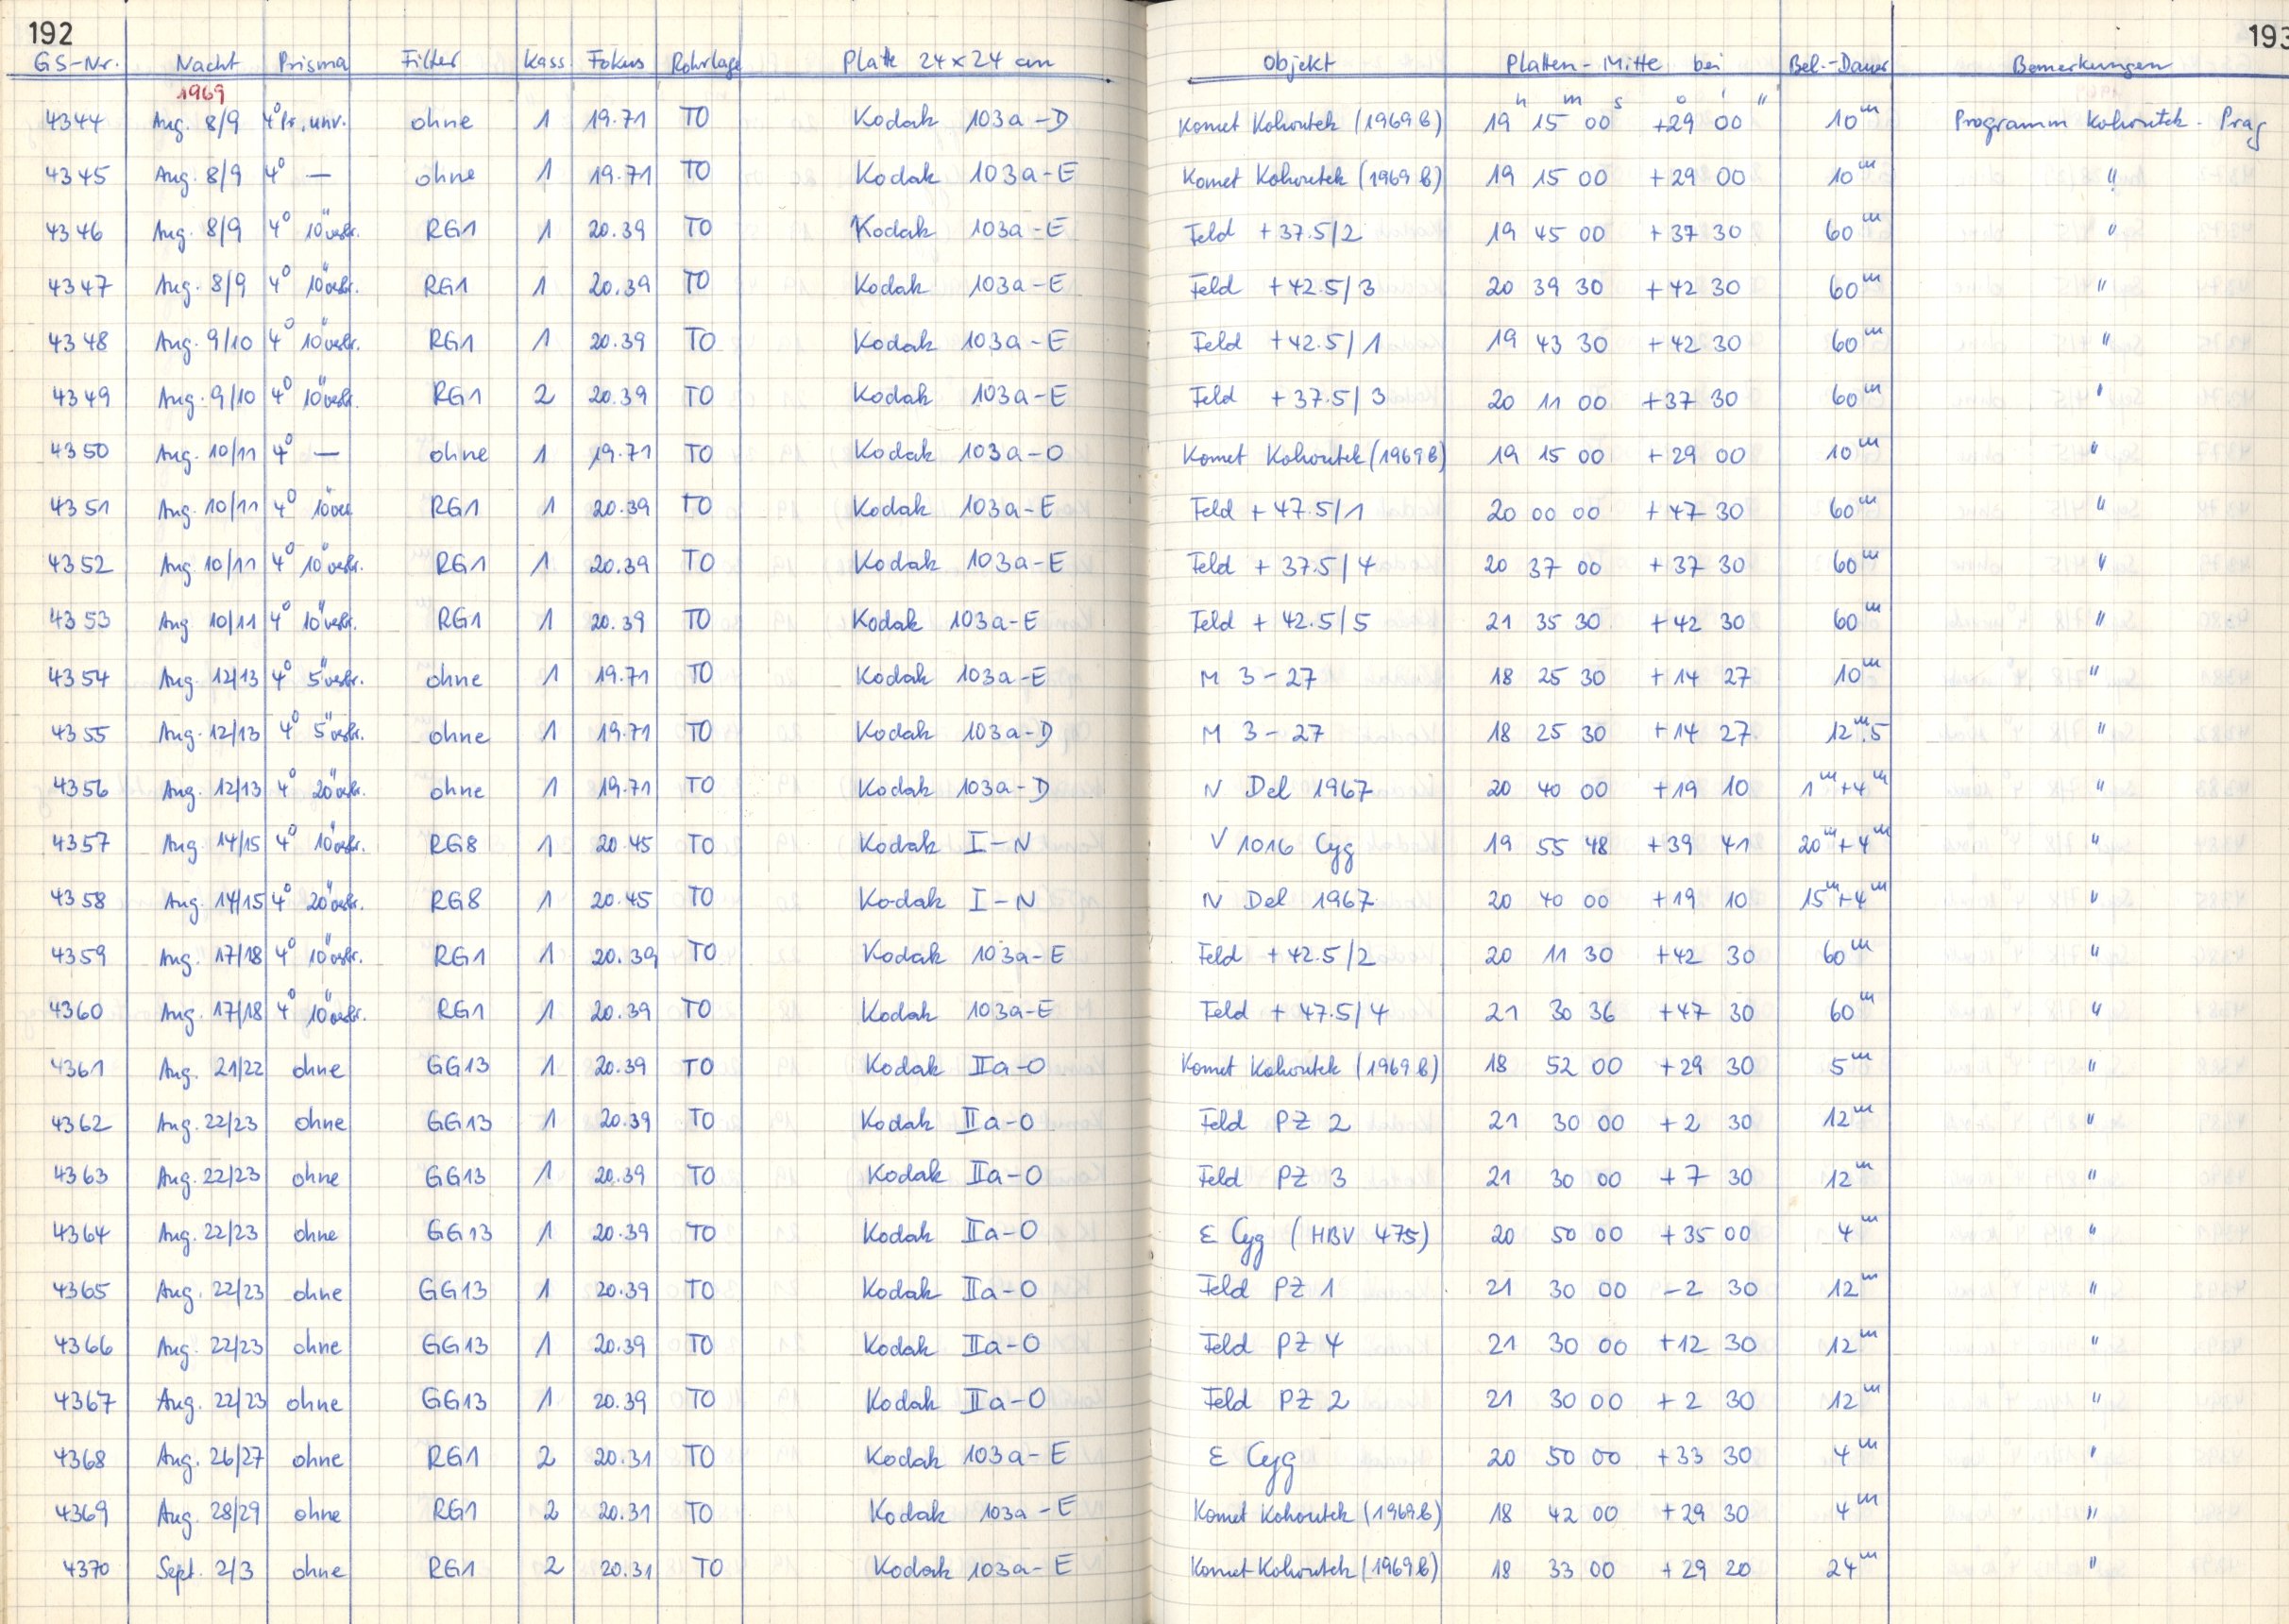 192 193
GS-Nr. Nacht Prisma Filter Kass Fokus Rohrlage Platte 24 x 24 cm Objekt Platten-Mitte bei Bel.-Dauer Bemerkungen
1969
h m s ° ' "
4344 Aug. 8/9 4° Pr. unv. ohne 1 19.71 TO Kodak 103a-D Komet Kohoutek (1969b) 19 15 00 +29 00 10m Programm Kohoutek - Prag
4345 Aug. 8/9 4° — ohne 1 19.71 TO Kodak 103a-E Komet Kohoutek (1969b) 19 15 00 +29 00 10m "
4346 Aug. 8/9 4° 10" verbr. RG1 1 20.39 TO Kodak 103a-E Feld +37.5/2 19 45 00 +37 30 60m "
4347 Aug. 8/9 4° 10" verbr. RG1 1 20.39 TO Kodak 103a-E Feld +42.5/3 20 39 30 +42 30 60m "
4348 Aug. 9/10 4° 10" verbr. RG1 1 20.39 TO Kodak 103a-E Feld +42.5/1 19 43 30 +42 30 60m "
4349 Aug. 9/10 4° 10" verbr. RG1 2 20.39 TO Kodak 103a-E Feld +37.5/3 20 11 00 +37 30 60m "
4350 Aug. 10/11 4° — ohne 1 19.71 TO Kodak 103a-O Komet Kohoutek (1969b) 19 15 00 +29 00 10m "
4351 Aug. 10/11 4° 10" ver. RG1 1 20.39 TO Kodak 103a-E Feld +47.5/1 20 00 00 +47 30 60m "
4352 Aug. 10/11 4° 10" verbr. RG1 1 20.39 TO Kodak 103a-E Feld +37.5/4 20 37 00 +37 30 60m "
4353 Aug 10/11 4° 10" verbr. RG1 1 20.39 TO Kodak 103a-E Feld +42.5/5 21 35 30 +42 30 60m "
4354 Aug. 12/13 4° 5" verbr. ohne 1 19.71 TO Kodak 103a-E M 3-27 18 25 30 +14 27 10m "
4355 Aug. 12/13 4° 5" verbr. ohne 1 19.71 TO Kodak 103a-D M 3-27 18 25 30 +14 27 12m.5 "
4356 Aug. 12/13 4° 20" verbr. ohne 1 19.71 TO Kodak 103a-D N Del 1967 20 40 00 +19 10 1m+4m "
4357 Aug. 14/15 4° 10" verbr. RG8 1 20.45 TO Kodak I-N V 1016 Cyg 19 55 48 +39 41 20m+4m "
4358 Aug. 14/15 4° 20" verbr. RG8 1 20.45 TO Kodak I-N N Del 1967 20 40 00 +19 10 15m+4m "
4359 Aug. 17/18 4° 10" verbr. RG1 1 20.39 TO Kodak 103a-E Feld +42.5/2 20 11 30 +42 30 60m "
4360 Aug. 17/18 4° 10" verbr. RG1 1 20.39 TO Kodak 103a-E Feld +47.5/4 21 30 36 +47 30 60m "
4361 Aug. 21/22 ohne GG13 1 20.39 TO Kodak IIa-O Komet Kohoutek (1969b) 18 52 00 +29 30 5m "
4362 Aug. 22/23 ohne GG13 1 20.39 TO Kodak IIa-O Feld PZ 2 21 30 00 +2 30 12m "
4363 Aug. 22/23 ohne GG13 1 20.39 TO Kodak IIa-O Feld PZ 3 21 30 00 +7 30 12m "
4364 Aug. 22/23 ohne GG13 1 20.39 TO Kodak IIa-O ε Cyg (HBV 475) 20 50 00 +35 00 4m "
4365 Aug. 22/23 ohne GG13 1 20.39 TO Kodak IIa-O Feld PZ 1 21 30 00 -2 30 12m "
4366 Aug. 22/23 ohne GG13 1 20.39 TO Kodak IIa-O Feld PZ 4 21 30 00 +12 30 12m "
4367 Aug. 22/23 ohne GG13 1 20.39 TO Kodak IIa-O Feld PZ 2 21 30 00 +2 30 12m "
4368 Aug. 26/27 ohne RG1 2 20.31 TO Kodak 103a-E ε Cyg 20 50 00 +33 30 4m "
4369 Aug. 28/29 ohne RG1 2 20.31 TO Kodak 103a-E Komet Kohoutek (1969b) 18 42 00 +29 30 4m "
4370 Sept. 2/3 ohne RG1 2 20.31 TO Kodak 103a-E Komet Kohoutek (1969b) 18 33 00 +29 20 24m "